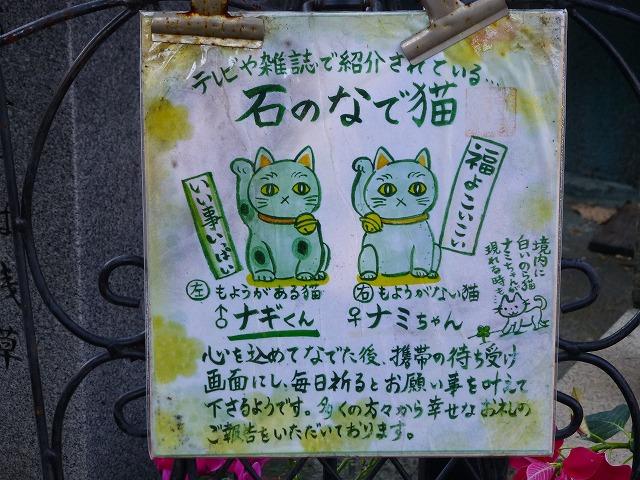 テレビや雑誌で紹介されている…
石のなで猫
いい事いっぱい
福よこいこい
境内に
白いのら猫
ナミちゃんが
現れる時も…
左 もようがある猫
♂ナギくん
右 もようがない猫
♀ナミちゃん
心を込めてなでた後、携帯の待ち受け
画面にし、毎日祈るとお願い事を叶えて
下さるようです。多くの方々から幸せなお礼の
ご報告をいただいております。
浅草